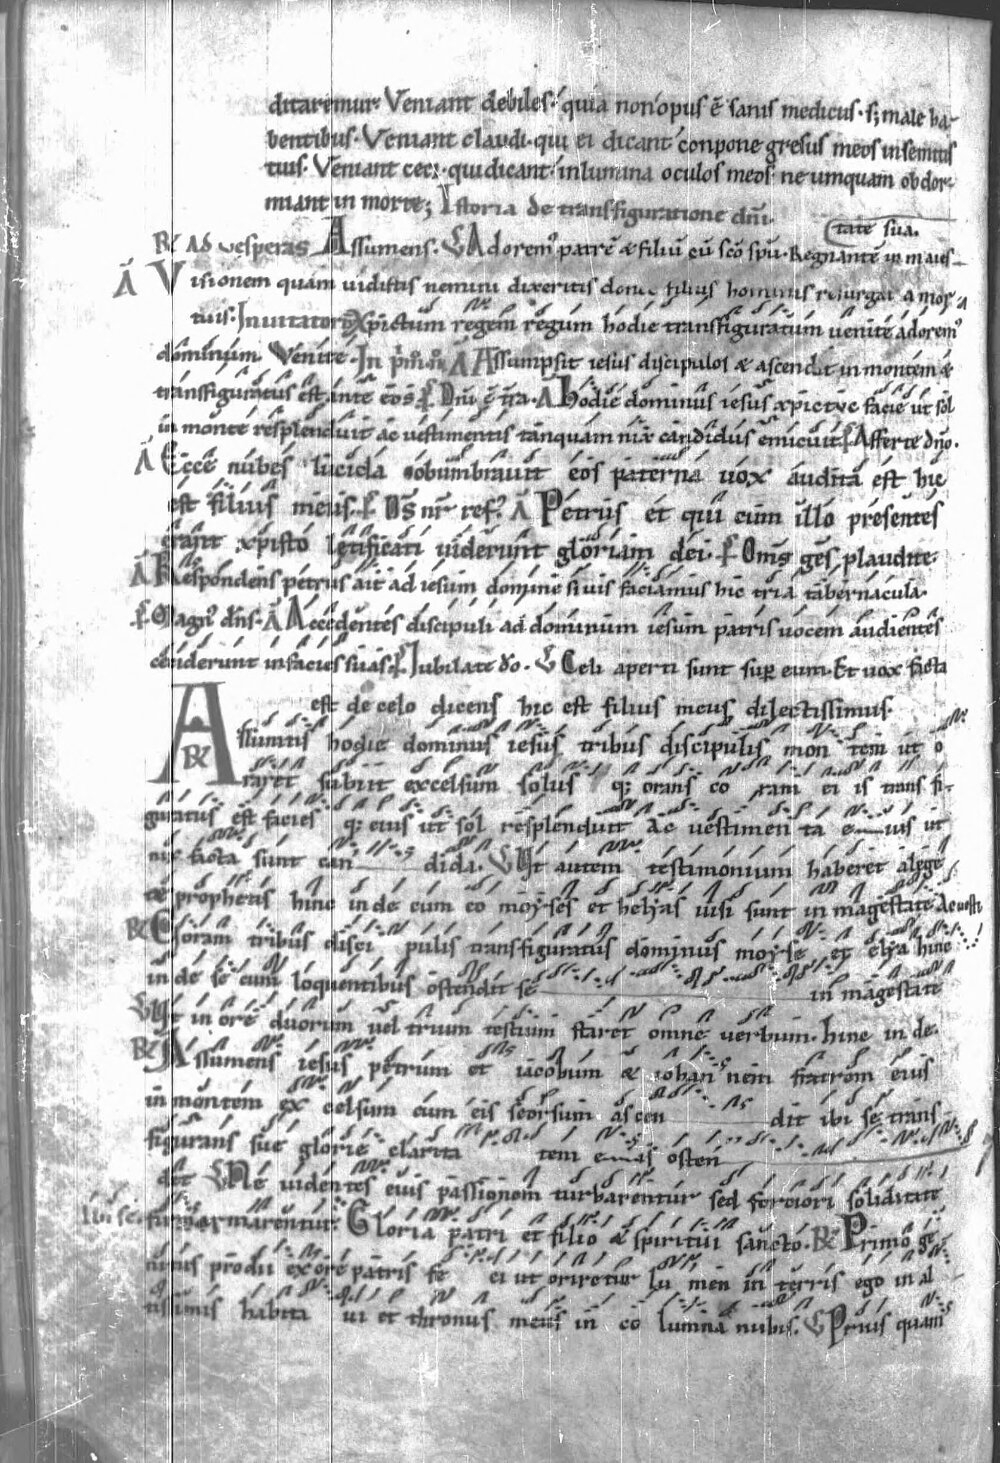 ditaremur. Veniant debiles. quia non opus ē sanis medicus. s; male ha-
bentibus. Veniant claudi. qui ei dicant conpone gresus meos in semitis
tuis. Veniant ceci. qui dicant. inlumina oculos meos ne umquam obdor-
miant in morte; Istoria de transfiguratione dn̄i.
tate sua.
R AD vesperas Assumens. V Adorem⁹ patrē & filiū cū sc̄o spū. Regnante in maies-
A Visionem quam uidistis nemini dixeritis donec filius hominis resurgat a mor-
tuis. Inuitatoriū Xpictum regem regum hodie transfiguratum uenite adorem⁹
dominum. Venite. In A Assumpsit iesus discipulos & ascendit in montem &
transfiguratus est ante eos. P Dn̄i ē tr̄a. A Hodie dominus iesus facie ut sol
in monte resplenduit ac uestimentis tanquam nix candidus emicuit. P Afferte dn̄o.
A Ecce nubes lucida obumbrauit eos paterna uox audita est hic
est filius meus. P Ds̄ nr̄ ref⁹. A Petrus et qui cum illo presentes
erant xpisto letificati uiderunt gloriam dei. P Oms̄ ges̄ plaudite.
A Respondens petrus ait ad iesum domine si uis faciamus hic tria tabernacula.
P Magn⁹ dn̄s. A Accedentes discipuli ad dominum iesum patris uocem audientes
ceciderunt in facies suas. P Iubilate do. V Celi aperti sunt sup eum. Et uox facta
est de celo dicens hic est filius meus dilectissimus.
R Assumtis hodie dominus iesus tribus discipulis mon tem ut o
raret subiit excelsum solus q; orans co ram ei is trans fi-
guratus est facies q; eius ut sol resplenduit Ac uestimen ta e ius ut
nix facta sunt can dida. V Ut autem testimonium haberet a lege
& prophetis hinc inde cum eo moyses et helyas uisi sunt in magestate. Ac uesti
R Coram tribus disci pulis transfiguratus dominus moyse et elya hinc
inde se cum loquentibus ostendit se in magestate
V Ut in ore duorum uel trium testium staret omne uerbum. hinc inde.
R Assumens iesus petrum et iacobum & iohan nem fratrem eius
in montem ex celsum cum eis seorsum ascen dit ibi se trans-
figurans sue glorie clarita tem e ius osten
dit V Ne uidentes eius passionem turbarentur sed forciori soliditate
firmarentur. Gloria patri et filio & spiritui sancto. R Primo ge
nitus prodii ex ore patris fe ci ut oriretur lu men in terris ego in al
tissimis habita ui et thronus meus in co lumna nubis. V Prius quam